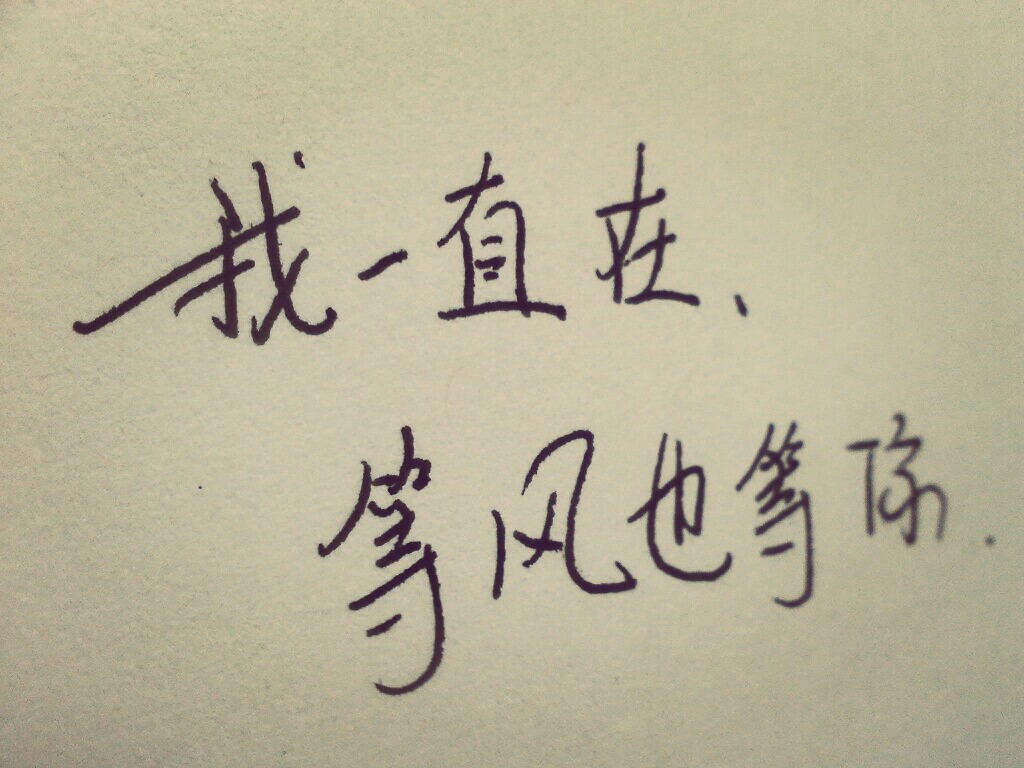 我一直在、
等风也等你.